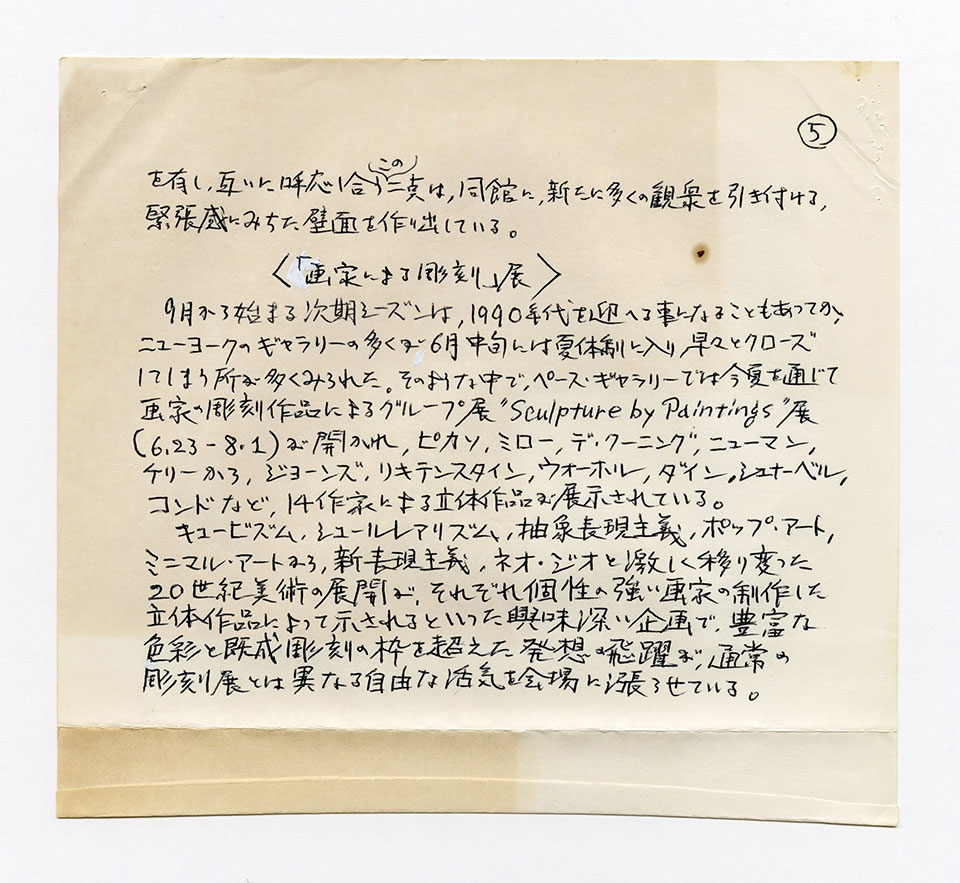 ⑤
この
を有し、互いに呼応し合う二点は、同館に、新たに多くの観衆を引き付ける、
緊張感にみちた壁面を作り出している。
〈「画家による彫刻」展〉
9月から始まる次期シーズンは、1990年代を迎へる事になることもあってか、
ニューヨークのギャラリーの多くが6月中旬には夏体制に入り、早々とクローズ
してしまう所が多くみられた。そのような中で、ペース・ギャラリーでは今夏を通じて
画家の彫刻作品によるグループ展“Sculpture by Paintings”展
(6.23-8.1)が開かれ、ピカソ、ミロー、デ・クーニング、ニューマン、
ケリーから、ジョーンズ、リキテンスタイン、ウォーホル、ダイン、シュナーベル、
コンドなど、14作家による立体作品が展示されている。
キュービズム、シュールレアリズム、抽象表現主義、ポップ・アート、
ミニマル・アートから、新表現主義、ネオ・ジオと激しく移り変った
20世紀美術の展開が、それぞれ個性の強い画家の制作した
立体作品によって示されるといった興味深い企画で、豊富な
色彩と既成彫刻の枠を超えた発想の飛躍が、通常の
彫刻展とは異なる自由な活気を会場に漲らせている。